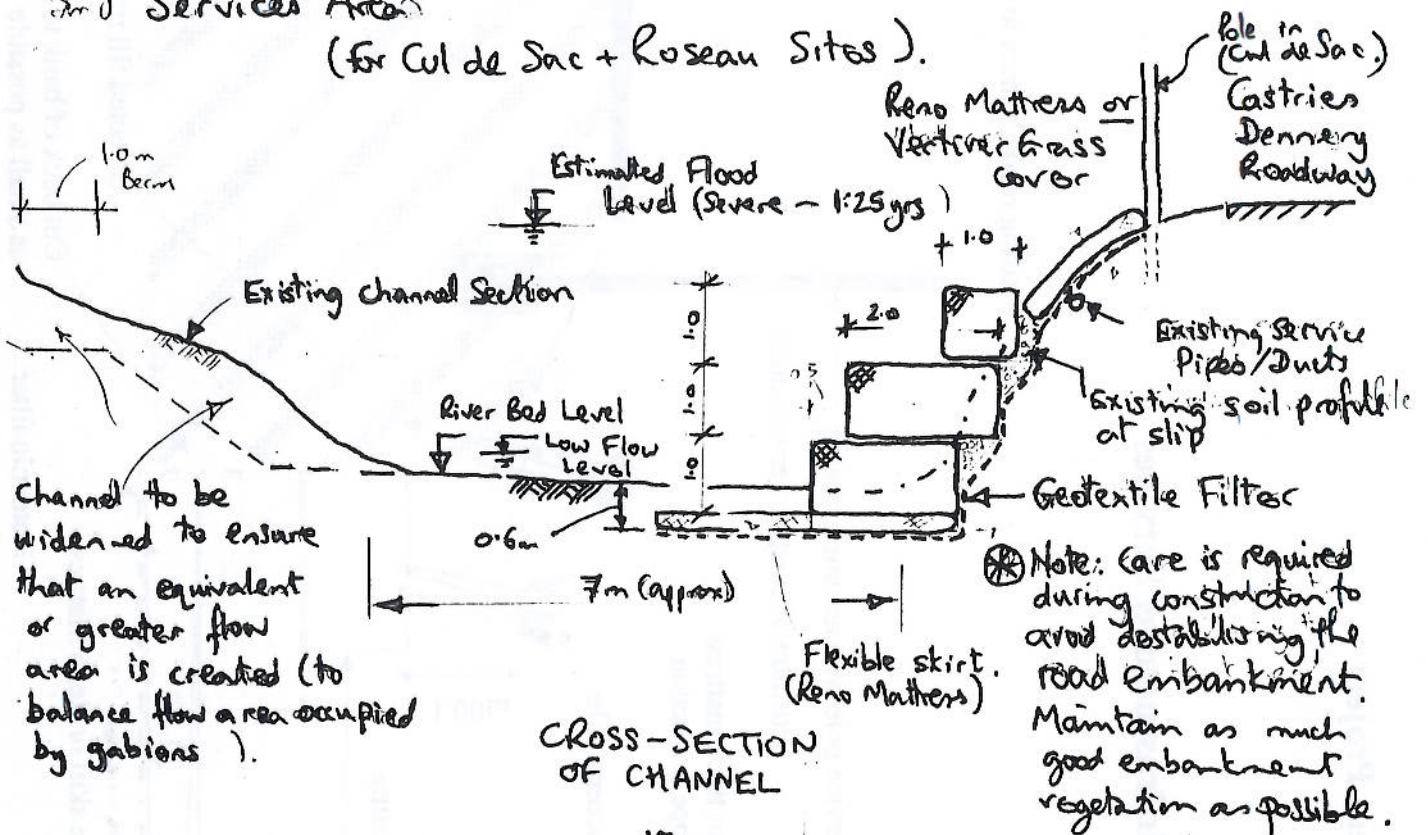 and Services Area
(for Cul de Sac + Roseau Sites).
Pole in
(Cul de Sac.)
Castries
Dennery
Roadway
Reno Mattress or
Vertiver Grass
cover
1.0m
Berm
Estimated Flood
Level (Severe - 1:25yrs)
1.0
Existing Channel Section
2.0
1.0
1.0
1.0
0.5
Existing Service
Pipes/Ducts
Existing soil profile
at slip
River Bed Level
Low Flow
Level
Geotextile Filter
0.6m
Channel to be
widenned to ensure
that an equivalent
or greater flow
area is created (to
balance flow area occupied
by gabions ).
7m (approx)
Flexible skirt.
(Reno Mattress)
CROSS-SECTION
OF CHANNEL
Note: Care is required
during construction to
avoid destabilising the
road embankment.
Maintain as much
good embankment
vegetation as possible.